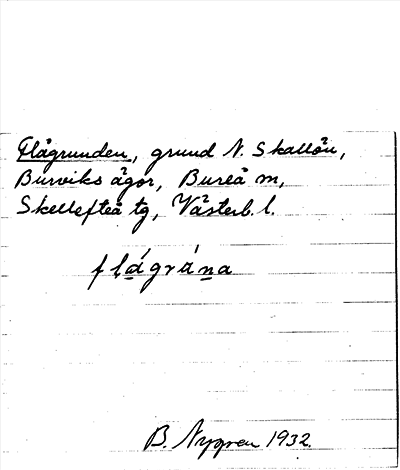 Flågrunden, grund N. Skallön,
Burviks ägor, Bureå m,
Skellefteå tg, Västerb. l.
flágrána
B. Nygren 1932.